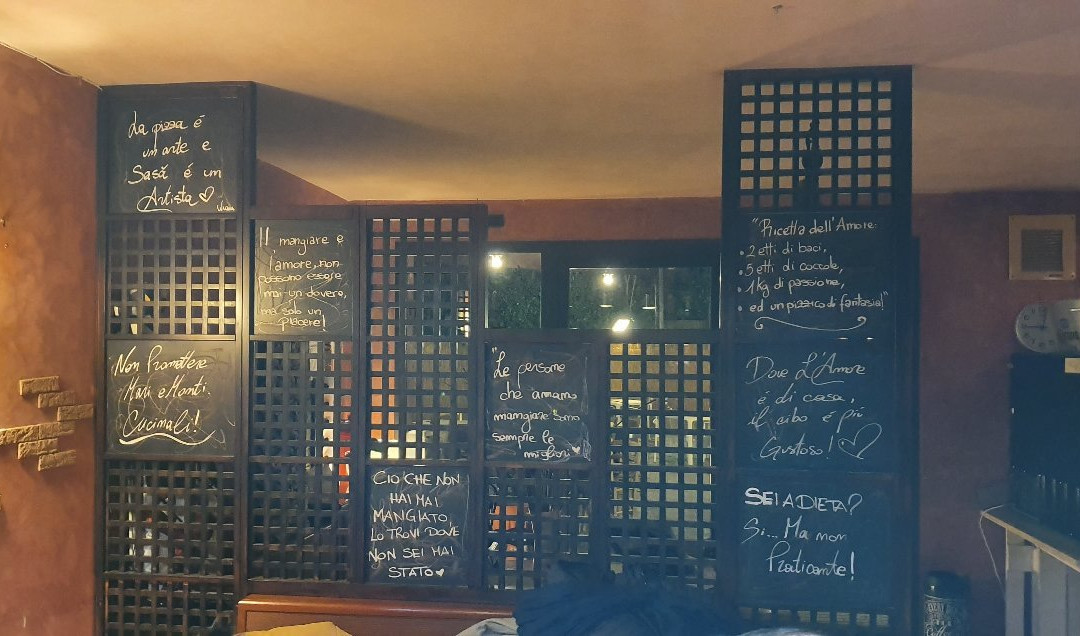 La pizza é
un arte e
Sasà é un
Artista
Il mangiare e
l'amore, non
possono essere
mai un dovere,
ma solo un
piacere!
Non Promettere
Mari e Monti.
Cucinali!
CIO CHE NON
HAI MAI
MANGIATO,
LO TROVI DOVE
NON SEI MAI
STATO
"Le persone
che amano
mangiare sono
sempre le
migliori
"Ricetta dell'Amore:
• 2 etti di baci,
• 5 etti di coccole,
• 1 Kg di passione,
• ed un pizzico di fantasia!"
Dove L'Amore
é di casa,
il cibo é più
Gustoso!
SEI A DIETA?
Si... Ma non
Praticante!